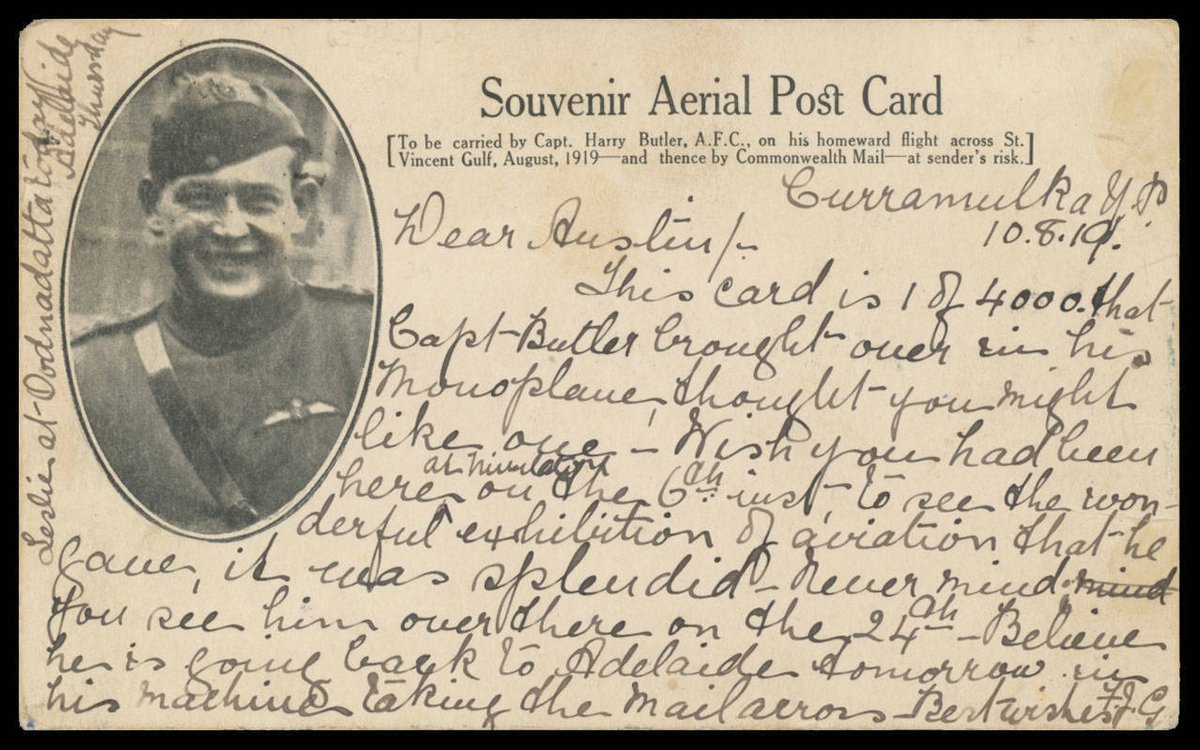 Souvenir Aerial Post Card
[To be carried by Capt. Harry Butler, A.F.C., on his homeward flight across St.
Vincent Gulf, August, 1919—and thence by Commonwealth Mail—at sender's risk.]
Curramulka Y.P
10.8.19.
Dear Austin/-
This card is 1 of 4000 that
Capt Butler brought over in his
Monoplane, thought you might
like one - Wish you had been
at Minlaton
here on the 6th inst, to see the won-
derful exhibition of aviation that he
gave, it was splendid - never mind mind
you see him over there on the 24th - Believe
he is going back to Adelaide tomorrow in
his machine taking the Mail across - Best wishes F.J.G
Leslie at Oodnadatta today
Adelaide
Thursday